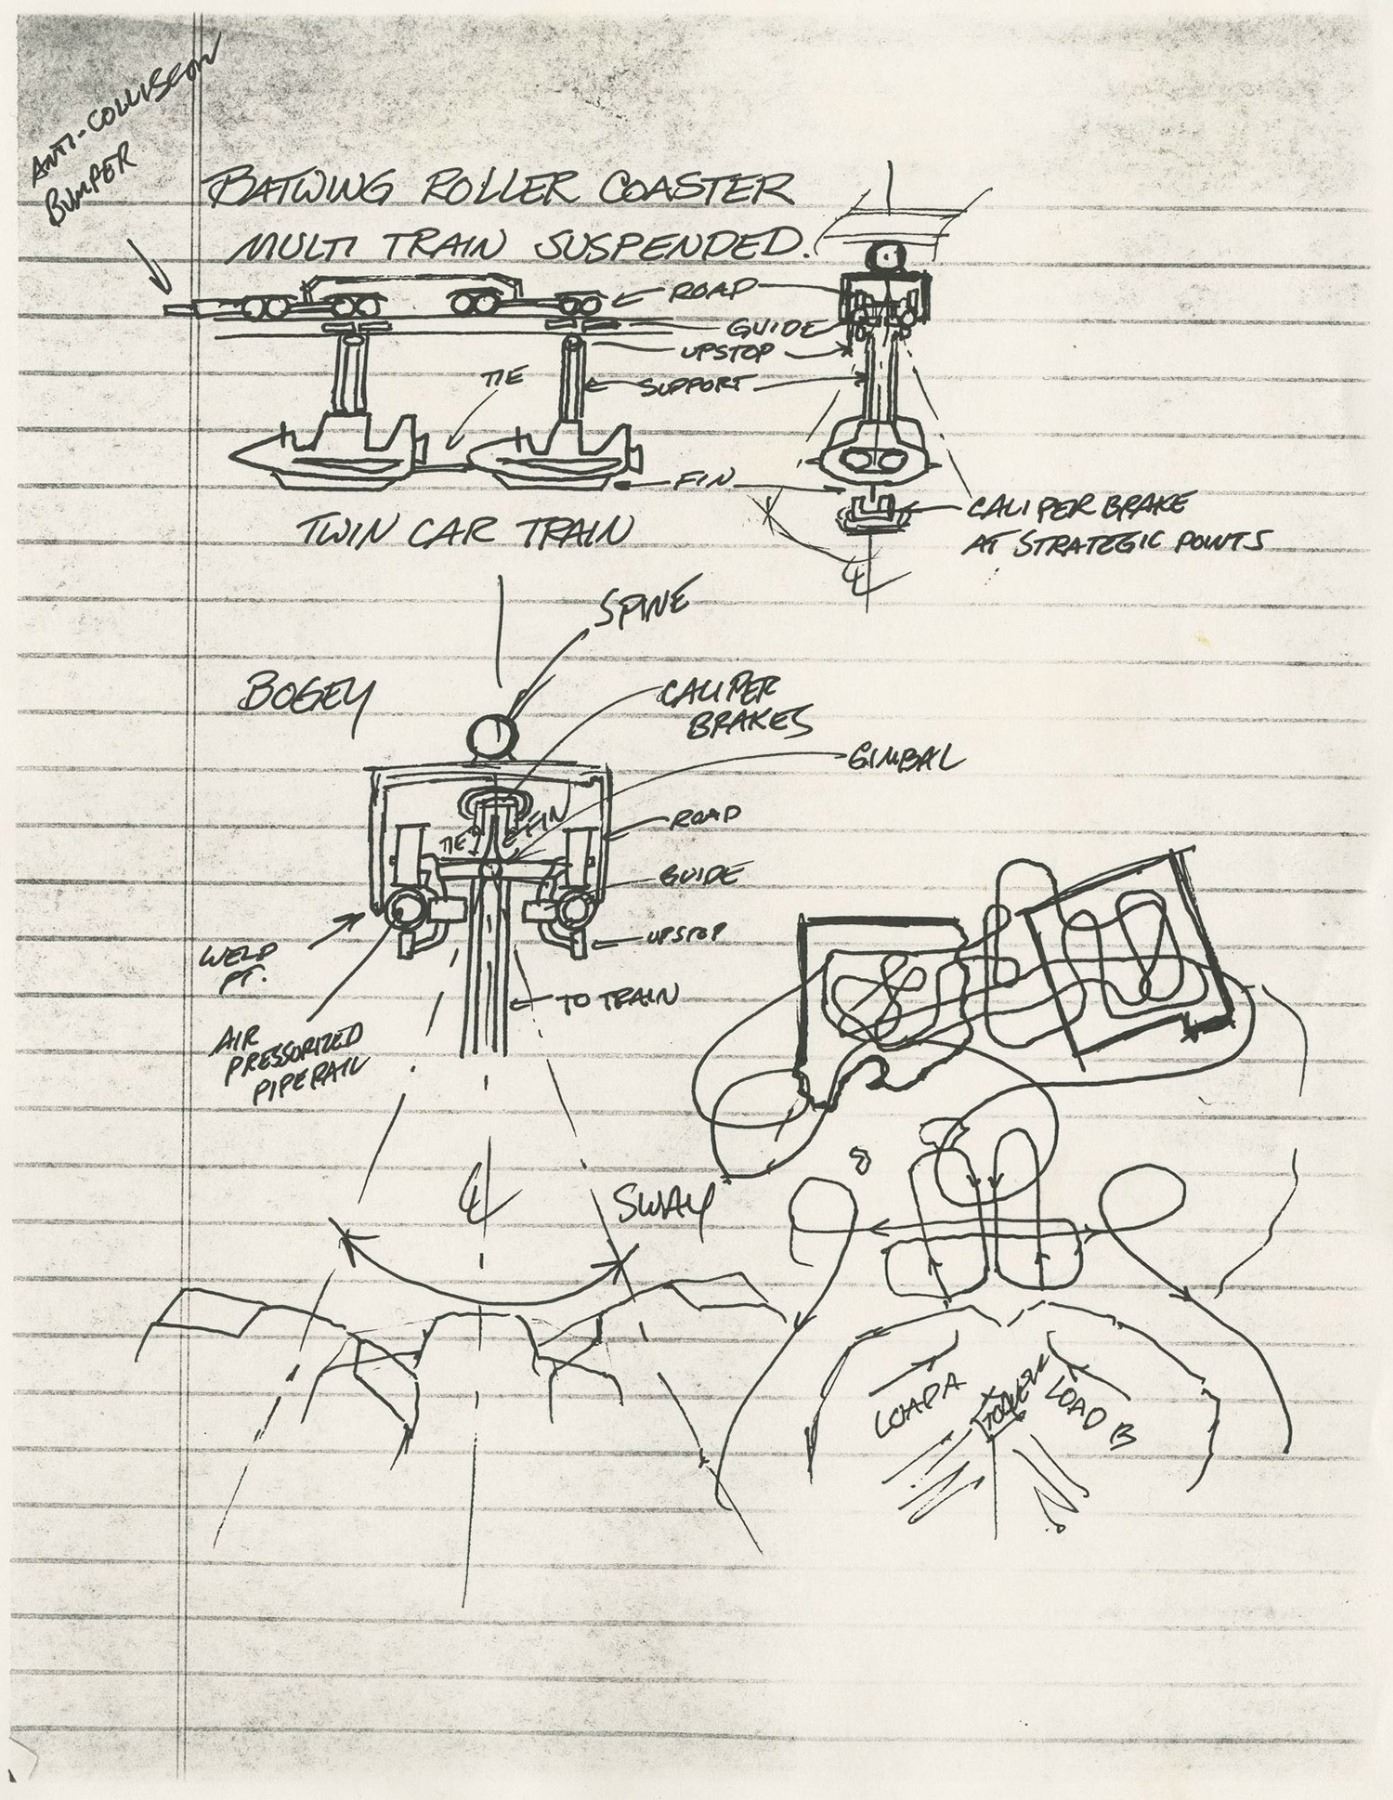 ANTI-COLLISEON
BUMPER
BATWING ROLLER COASTER
MULTI TRAIN SUSPENDED.
ROAD
GUIDE
UPSTOP
TIE
SUPPORT
FIN
CALIPER BRAKE
AT STRATEGIC POINTS
TWIN CAR TRAIN
℄
SPINE
BOGEY
CALIPER
BRAKES
GIMBAL
FIN
TIE
ROAD
GUIDE
WELD
PT.
UPSTOP
TO TRAIN
AIR
PRESSORIZED
PIPERAIL
℄
SWAY
8
LOAD A
LOAD B